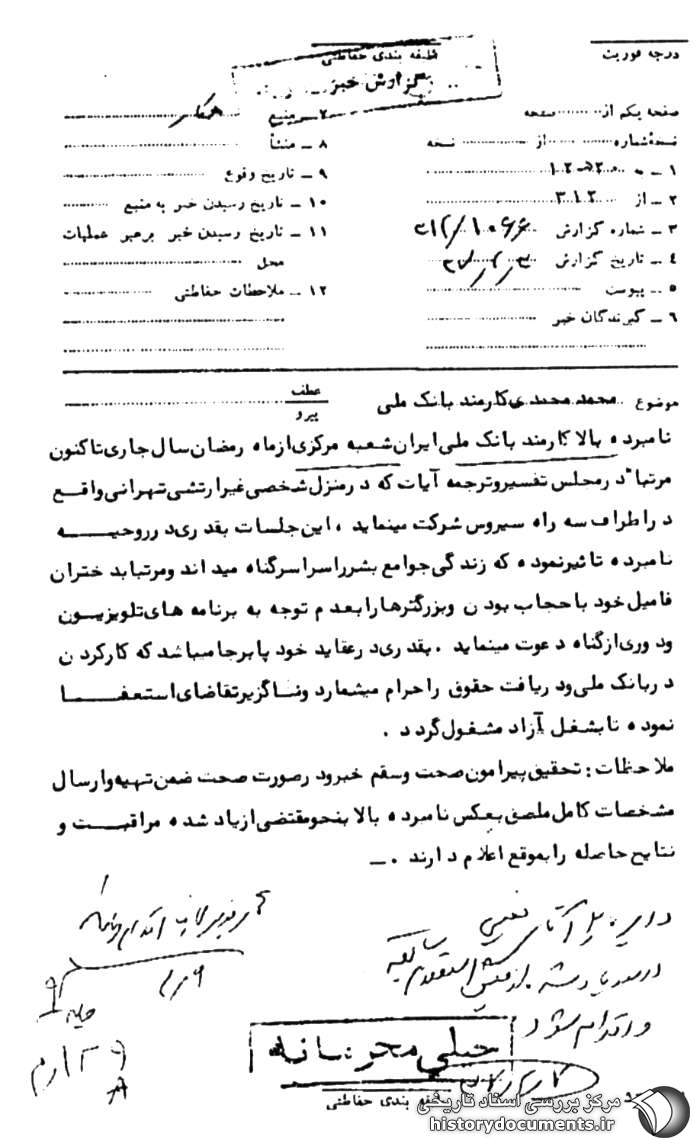 درجه فوریت
طبقه بندی حفاظتی
گزارش خبر
صفحه یکم از .......... صفحه
نسخه شماره ........ از ........ نسخه
۱ ـ به ۲۰ ۵ ۱۲
۲ ـ از ۳۱۲
۳ ـ شماره گزارش
۴ ـ تاریخ گزارش
۵ ـ پیوست
۶ ـ گیرندگان خبر
۷ ـ منبع همکار
۸ ـ منشأ
۹ ـ تاریخ وقوع
۱۰ ـ تاریخ رسیدن خبر به منبع
۱۱ ـ تاریخ رسیدن خبر برهبر عملیات
محل
۱۲ ـ ملاحظات حفاظتی
موضوع محمد محمدی کارمند بانک ملی
عطف
پیرو
نامبرده بالا کارمند بانک ملی ایران شعبه مرکزی از ماه رمضان سال جاری تاکنون
مرتبا" در مجلس تفسیر و ترجمه آیات که در منزل شخصی غیر ارتشی تهرانی واقع
در اطراف سه راه سیروس شرکت مینماید ، این جلسات بقدری در روحیـــه
نامبرده تاثیر نموده که زندگی جوامع بشر را سراسر گناه میداند و مرتبا بدختران
فامیل خود با حجاب بودن و بزرگترها را بعدم توجه به برنامه های تلویزیـــون
و دوری از گناه دعوت مینماید . بقدری در عقاید خود پابرجا میباشد که کار کردن
در بانک ملی و دریافت حقوق را حرام میشمارد و ناگزیر تقاضای استعفـــا
نموده تا بشغل آزاد مشغول گردد .
ملاحظات : تحقیق پیرامون صحت و سقم خبر و در صورت صحت ضمن تهیه و ارسال
مشخصات کامل ملصق بعکس نامبرده بالا بنحو مقتضی از یاد شده مراقبـــت و
نتایج حاصله را بموقع اعلام دارند . ـ
و اقدام شود
خیلی محرمانه
طبقه بندی حفاظتی
مرکز بررسی اسناد تاریخی
historydocuments.ir